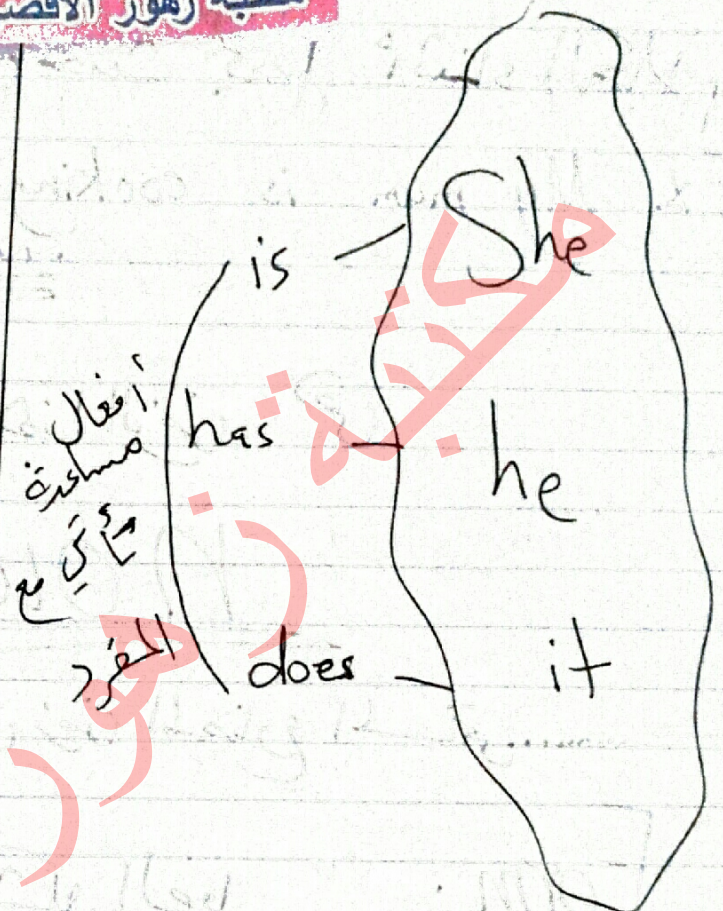 مكتبة زهور الأقصى
is She
has he
does it
أفعال
مساعدة
تأتي مع
المفرد
مكتبة زهور